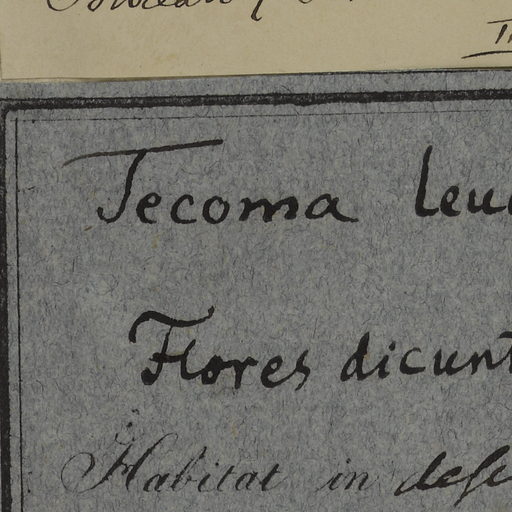 Tecoma leu
Flores dicunt
Habitat in dese